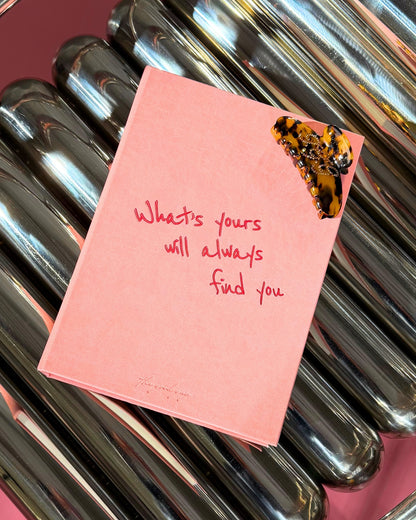 What's yours
will always
find you